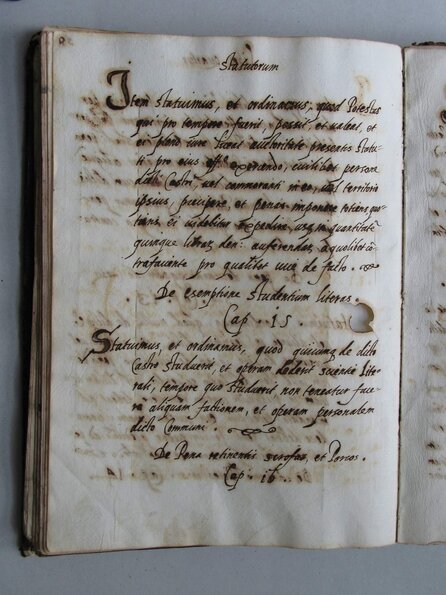 Statutorum
Item statuimus, et ordinamus, quod Potestas
qui pro tempore fuerit, possit, et valeat, et
ei plano iure liceat auctoritate presentis Statu-
ti pro eius offo exercendo, cuilibet persone
dicti Castri, vel commoranti in eo, vel territorio
ipsius, precipere, et penas imponere totiens quo
tiens ei videbitur expedire, usq in quantitatē
quinque libras den: auferendas a quolibet cō-
trafaciente pro qualibet vice de facto.
De exemptione studentium literas.
Cap. 15
Statuimus, et ordinamus, quod quicunq de dicto
Castro studuerit, et operam dederit scientie lite-
rali, tempore quo studuerit non teneatur face-
re aliquam fationem, et operam personalem
dicto Communi
De Pena retinentis scrofas, et Porcos.
Cap. 16